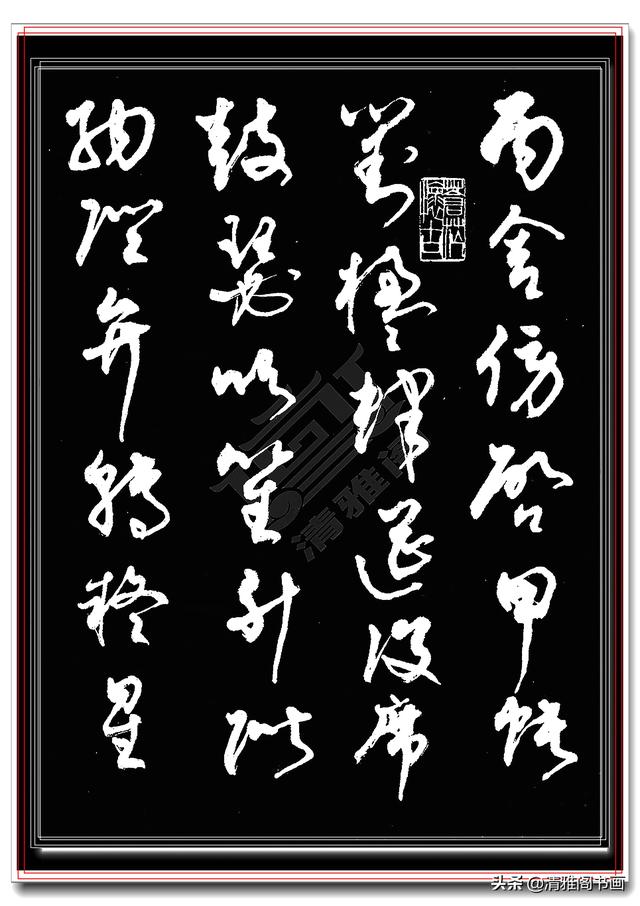 丙舍傍啓甲帳
對楹肆筵設席
鼓瑟吹笙升階
納陛弁轉疑星
清雅阁
头条 @清雅阁书画